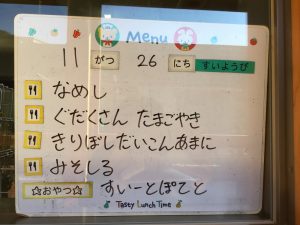 Menu
11 がつ 26 にち すいようび
なめし
ぐだくさん たまごやき
きりぼしだいこんあまに
みそしる
☆おやつ☆ すいーとぽてと
Tasty Lunch Time